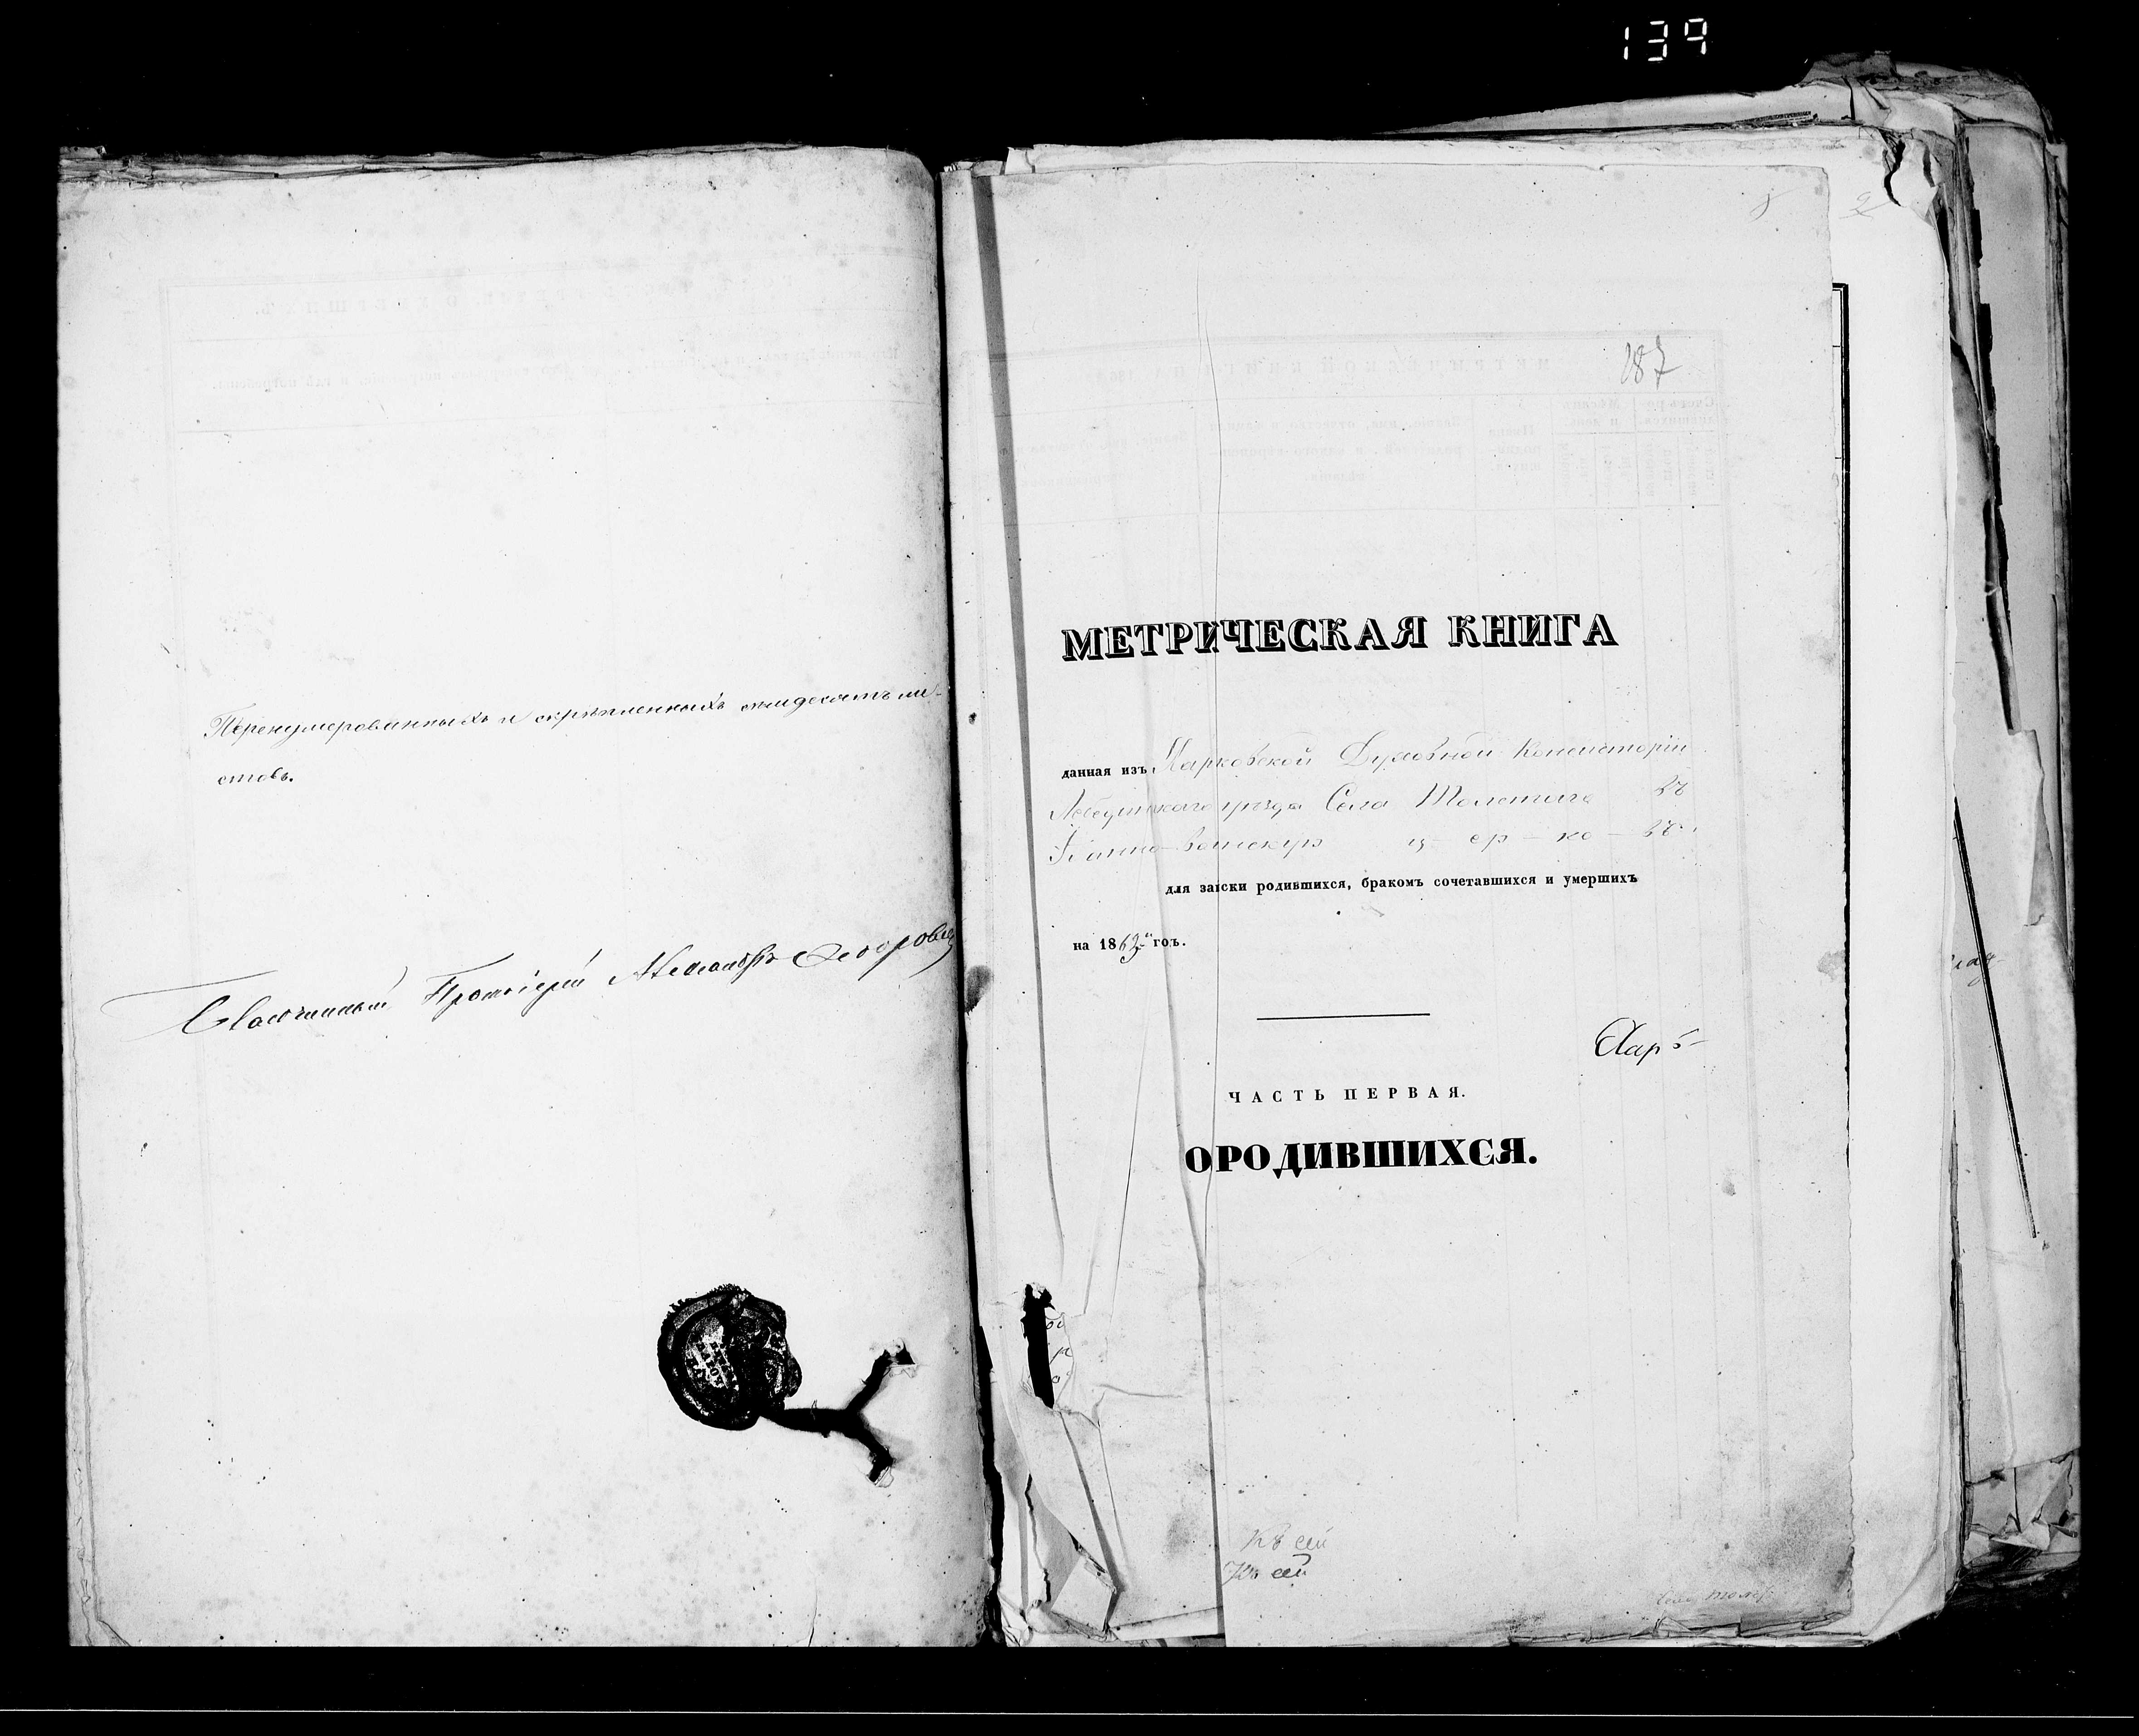 139
Перенумерованныхъ и скрѣпленныхъ ли-
стовъ.
Благочинный Протоіерей Александръ Ѳедоровъ
187
МЕТРИЧЕСКАЯ КНИГА
данная изъ Харьковской Духовной Консисторіи
Лебединскаго уѣзда Села Толстаго въ
ц - ер - ко - въ
для записки родившихся, бракомъ сочетавшихся и умершихъ
на 1863й годъ.
ЧАСТЬ ПЕРВАЯ.
О РОДИВШИХСЯ.
Къ сей
Къ сей